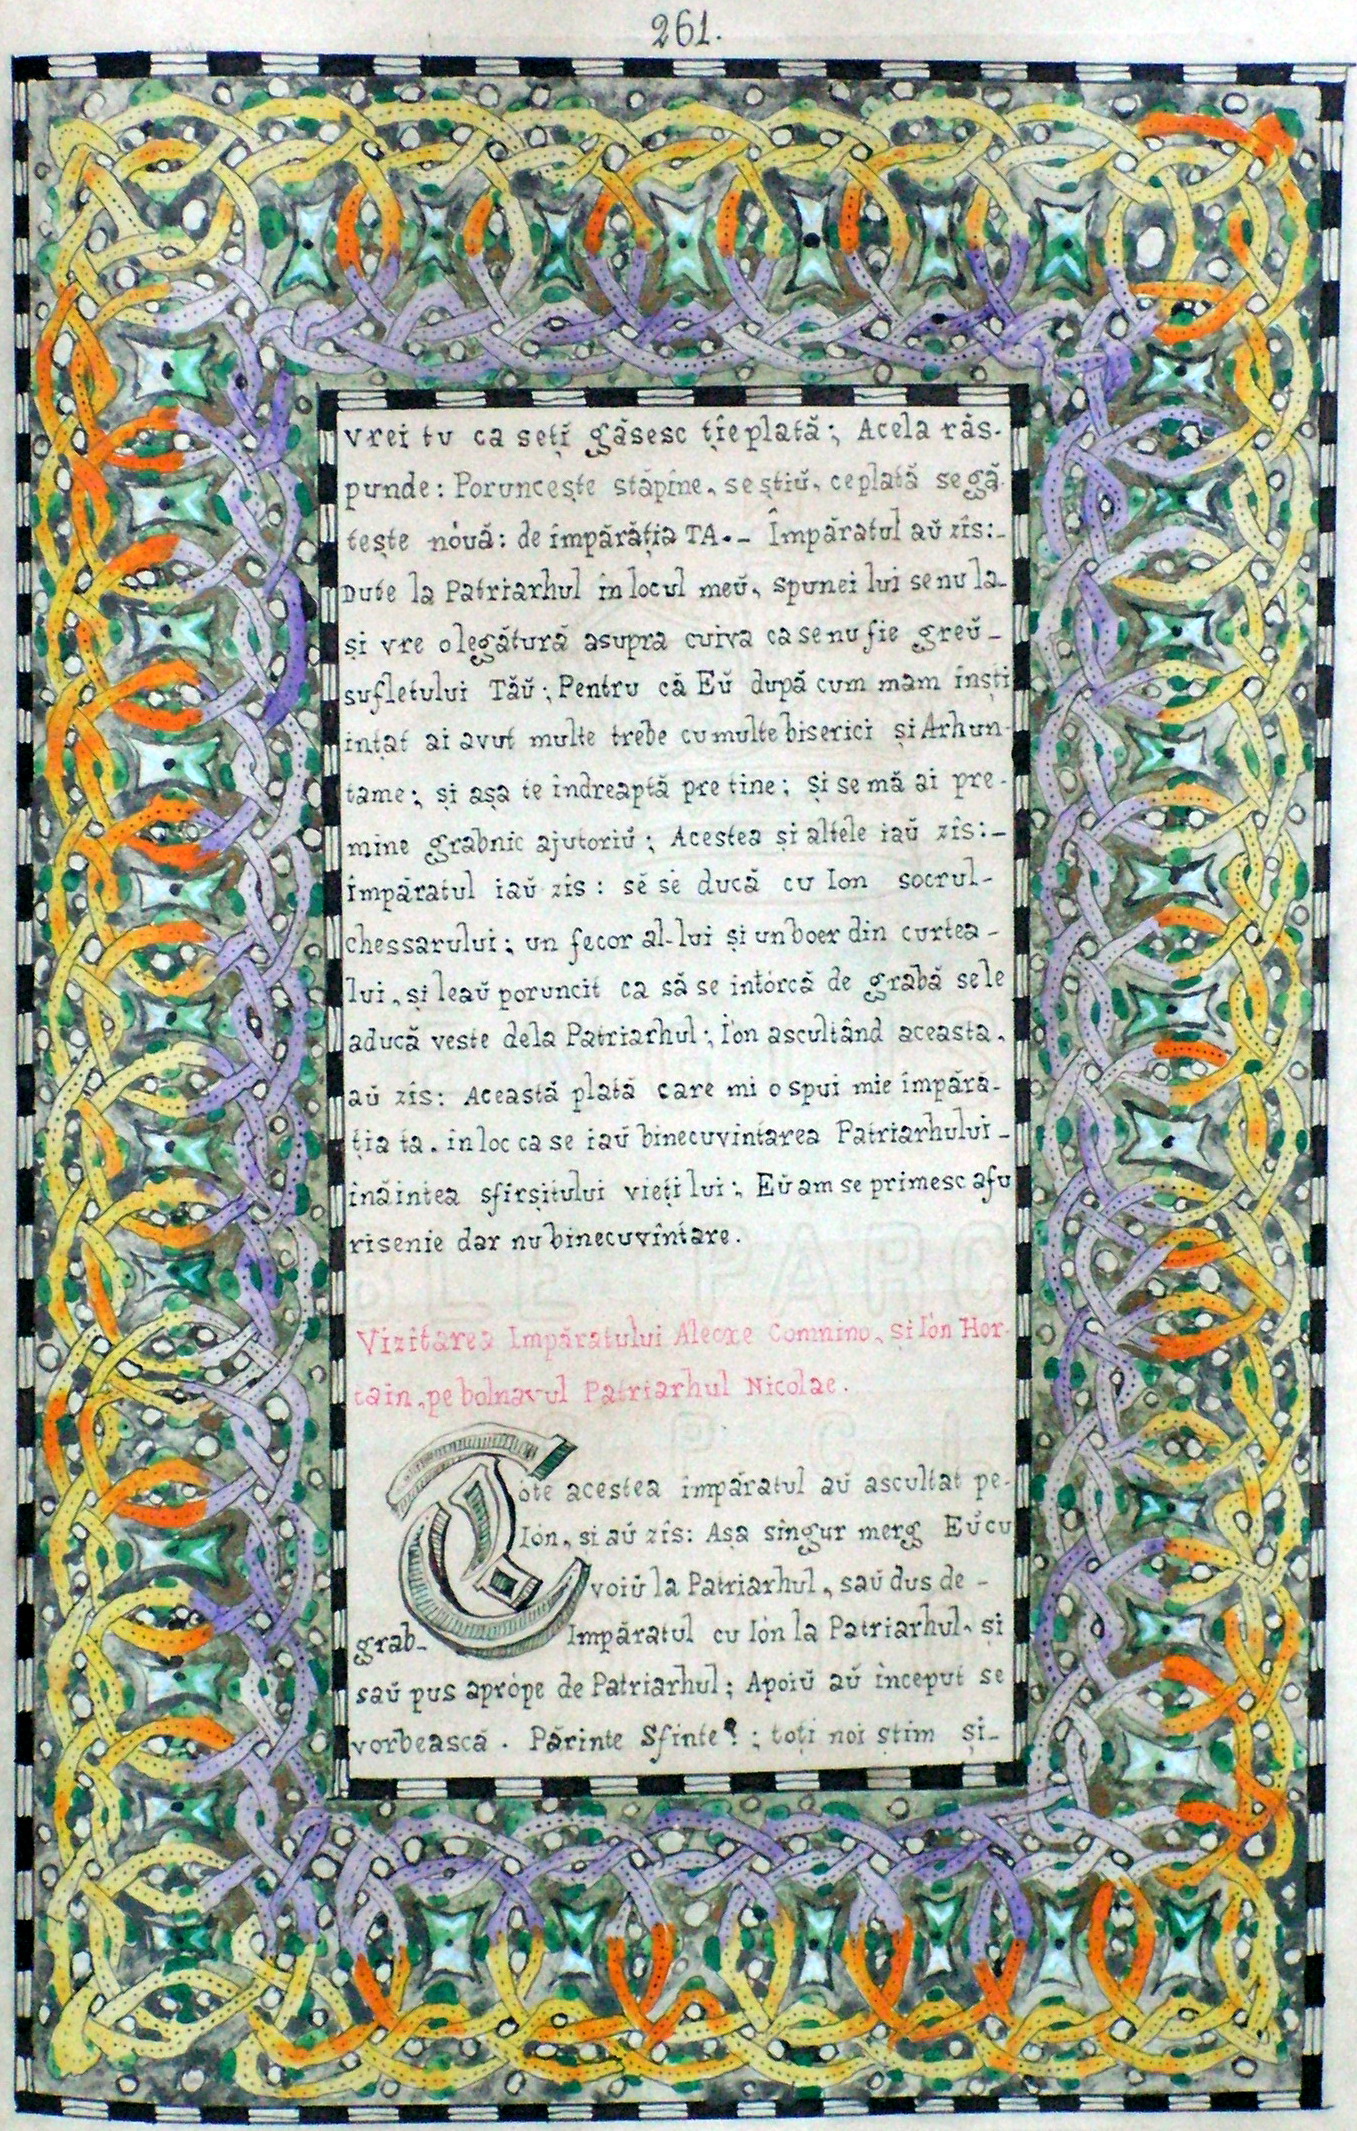 261.
vrei tu ca seți găsesc țieplată; Acela răs-
punde: Poruncește stăpîne, seștiŭ, ceplată segă-
tește nóuă: de împărăția TA.- Împăratul aŭ zîs:-
Dute la Patriarhul în locul meŭ, spunei lui senu la-
și vre olegătură asupra cuiva casenu fie greŭ-
sufletului Tăŭ; Pentru că Eŭ după cum mam înști
ințat ai avut multe trebe cumultebiserici și Arhun-
tame; și așa te îndreaptă pre tine; și se mă ai pre-
mine grabnic ajutoriŭ; Acestea și altele iaŭ zîs:-
împăratul iaŭ zîs: sĕ sĕ ducă cu Ion socrul-
chessarului; un fecor al-lui și unboer din curtea-
lui, și leaŭ poruncit ca să se intórcă de grabă sele
aducă veste dela Patriarhul; Íon ascultând aceasta,
aŭ zîs: Această plată care mi o spui mie împără-
ția ta. în loc ca se iaŭ binecuvintarea Patriarhului-
înăintea sfîrșitului vieți lui; Eŭ am se primesc afu
risenie dar nu binecuvîntare.
Vizitarea Impăratului Alecxe Comnino, și Ión Hor-
tain, pe bolnavul Patriarhul Nicolae.
Tote acestea împăratul aŭ ascultat pe-
Ión, și aŭ zîs: Așa sîngur merg Eŭ cu
voiŭ la Patriarhul, saŭ dus de-
grab- Impăratul cu Ión la Patriarhul, și
saŭ pus aprópe de Patriarhul; Apoiŭ aŭ început se
vorbească. Părinte Sfinte!; toți noi știm și-